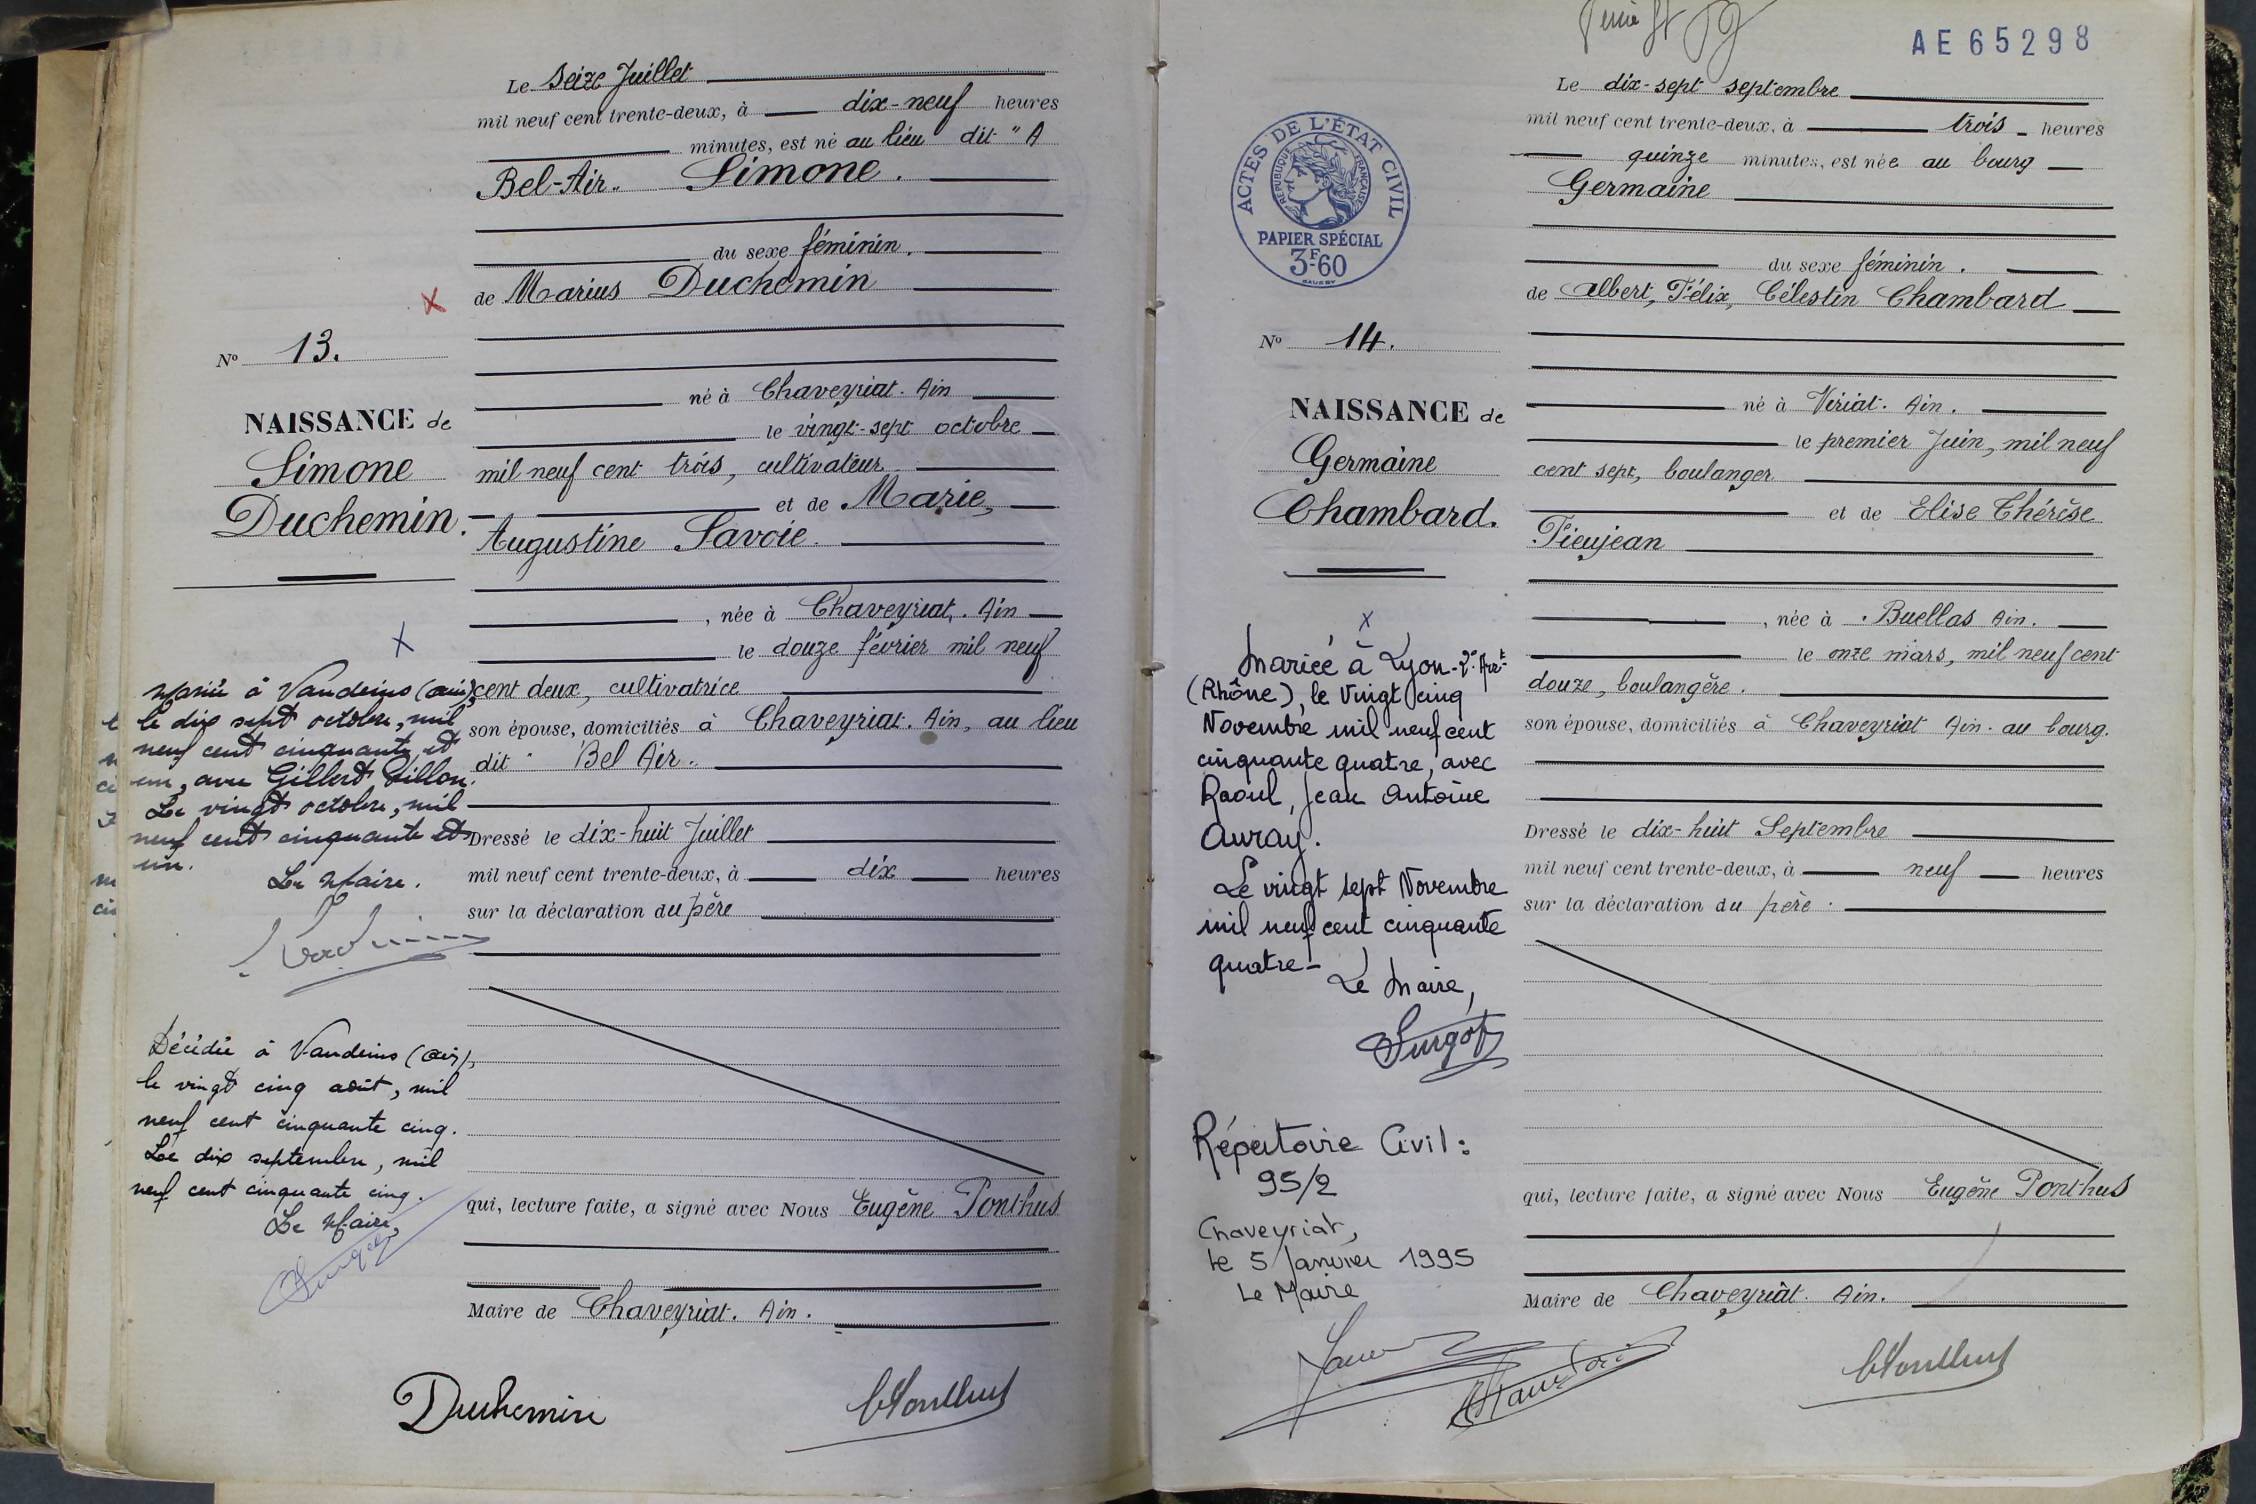 Le seize Juillet
mil neuf cent trente-deux, à dix-neuf heures
minutes, est né au lieu dit "A
Bel-Air. Simone.
du sexe féminin.
de Marius Duchemin
né à Chaveyriat. Ain
le vingt-sept octobre
mil neuf cent trois, cultivateur
et de Marie,
Augustine Savoie.
, née à Chaveyriat. Ain
le douze février mil neuf
cent deux, cultivatrice
son épouse, domiciliés à Chaveyriat. Ain, au lieu
dit Bel Air.
Dressé le dix-huit Juillet
mil neuf cent trente-deux, à dix heures
sur la déclaration du père
qui, lecture faite, a signé avec Nous Eugène Ponthus
Maire de Chaveyriat. Ain.
Duchemin
N° 13.
NAISSANCE de
Simone
Duchemin.
X
X
Mariée à Vandeins (Ain),
le dix sept octobre, mil
neuf cent cinquante et
un, avec Gilbert Dillon.
Le vingt octobre, mil
neuf cent cinquante et
un.
Le Maire.
Décédée à Vandeins (Ain),
le vingt cinq août, mil
neuf cent cinquante cinq.
Le dix septembre, mil
neuf cent cinquante cinq.
Le Maire,
AE65298
Le dix-sept septembre
mil neuf cent trente-deux, à trois heures
quinze minutes, est née au bourg
Germaine
du sexe féminin.
de Albert, Félix, Célestin Chambard
né à Viriat. Ain.
le premier Juin, mil neuf
cent sept, boulanger
et de Elise Thérèse
Pieujean
, née à Buellas Ain.
le onze mars, mil neuf cent
douze, boulangère.
son épouse, domiciliés à Chaveyriat Ain. au bourg.
Dressé le dix-huit Septembre
mil neuf cent trente-deux, à neuf heures
sur la déclaration du père.
qui, lecture faite, a signé avec Nous Eugène Ponthus
Maire de Chaveyriat. Ain.
ACTES DE L'ÉTAT CIVIL
RÉPUBLIQUE FRANÇAISE
PAPIER SPÉCIAL
3F60
N° 14.
NAISSANCE de
Germaine
Chambard.
X
Mariée à Lyon-2e Arrt
(Rhône), le Vingt cinq
Novembre mil neuf cent
cinquante quatre, avec
Raoul, Jean Antoine
Auray.
Le vingt sept Novembre
mil neuf cent cinquante
quatre-
Le Maire,
Répertoire Civil:
95/2
Chaveyriat,
le 5 Janvier 1995
Le Maire